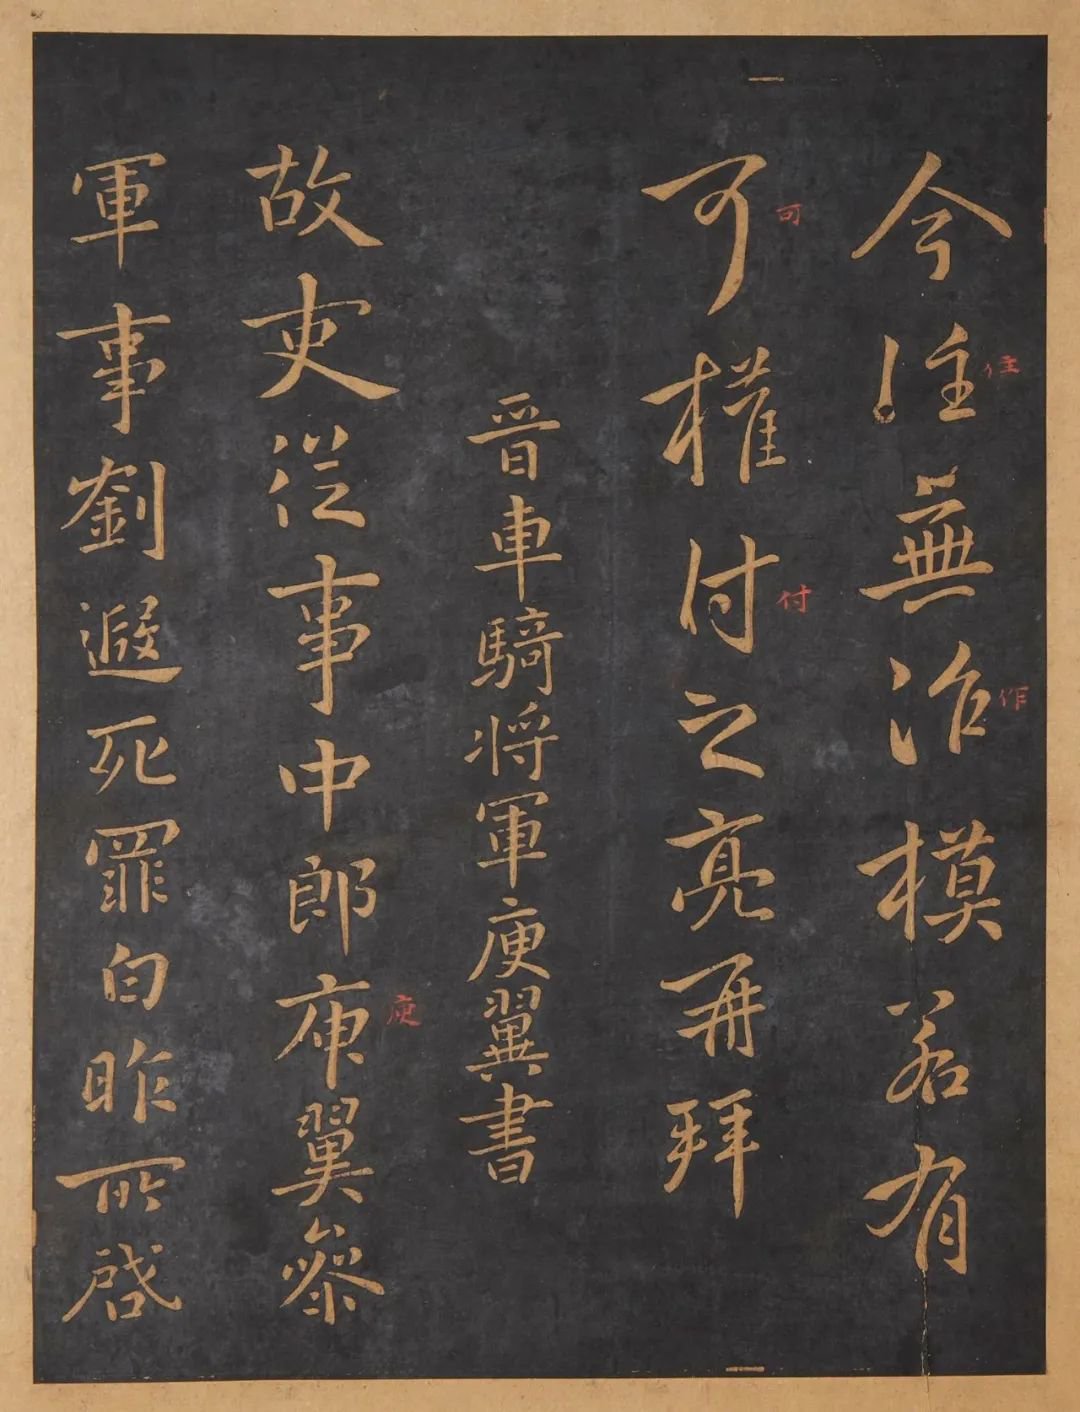 今住無作模若有
住
作
可權付之亮再拜
可
付
晉車騎将軍庾翼書
故吏従事中郎庾翼參
庾
軍事劉遐死罪白昨所啓